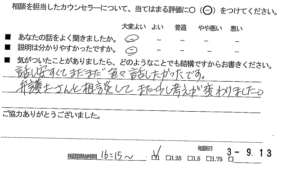 相談を担当したカウンセラーについて、当てはまる評価に○(⊖)をつけてください。
大変よい よい 普通 やや悪い 悪い
■ あなたの話をよく聞きましたか。
■ 説明は分かりやすかったですか。
■ 気がついたことがありましたら、どのようなことでも結構ですからお書きください。
話しやすくてまだまだ色々話したかったです。
弁護士さんに相談してまた少し考えが変わりました。
ご協力ありがとうございました。
相談日 3-9.13
相談開始時間 16:15~ 1.25 1.5 1.75